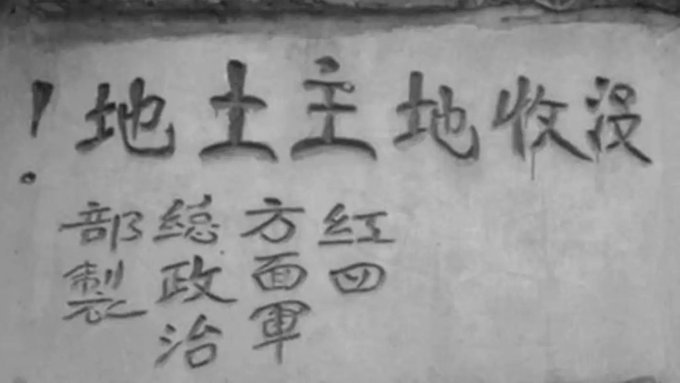 没收地主土地!
紅四
方面軍
總政治
部製